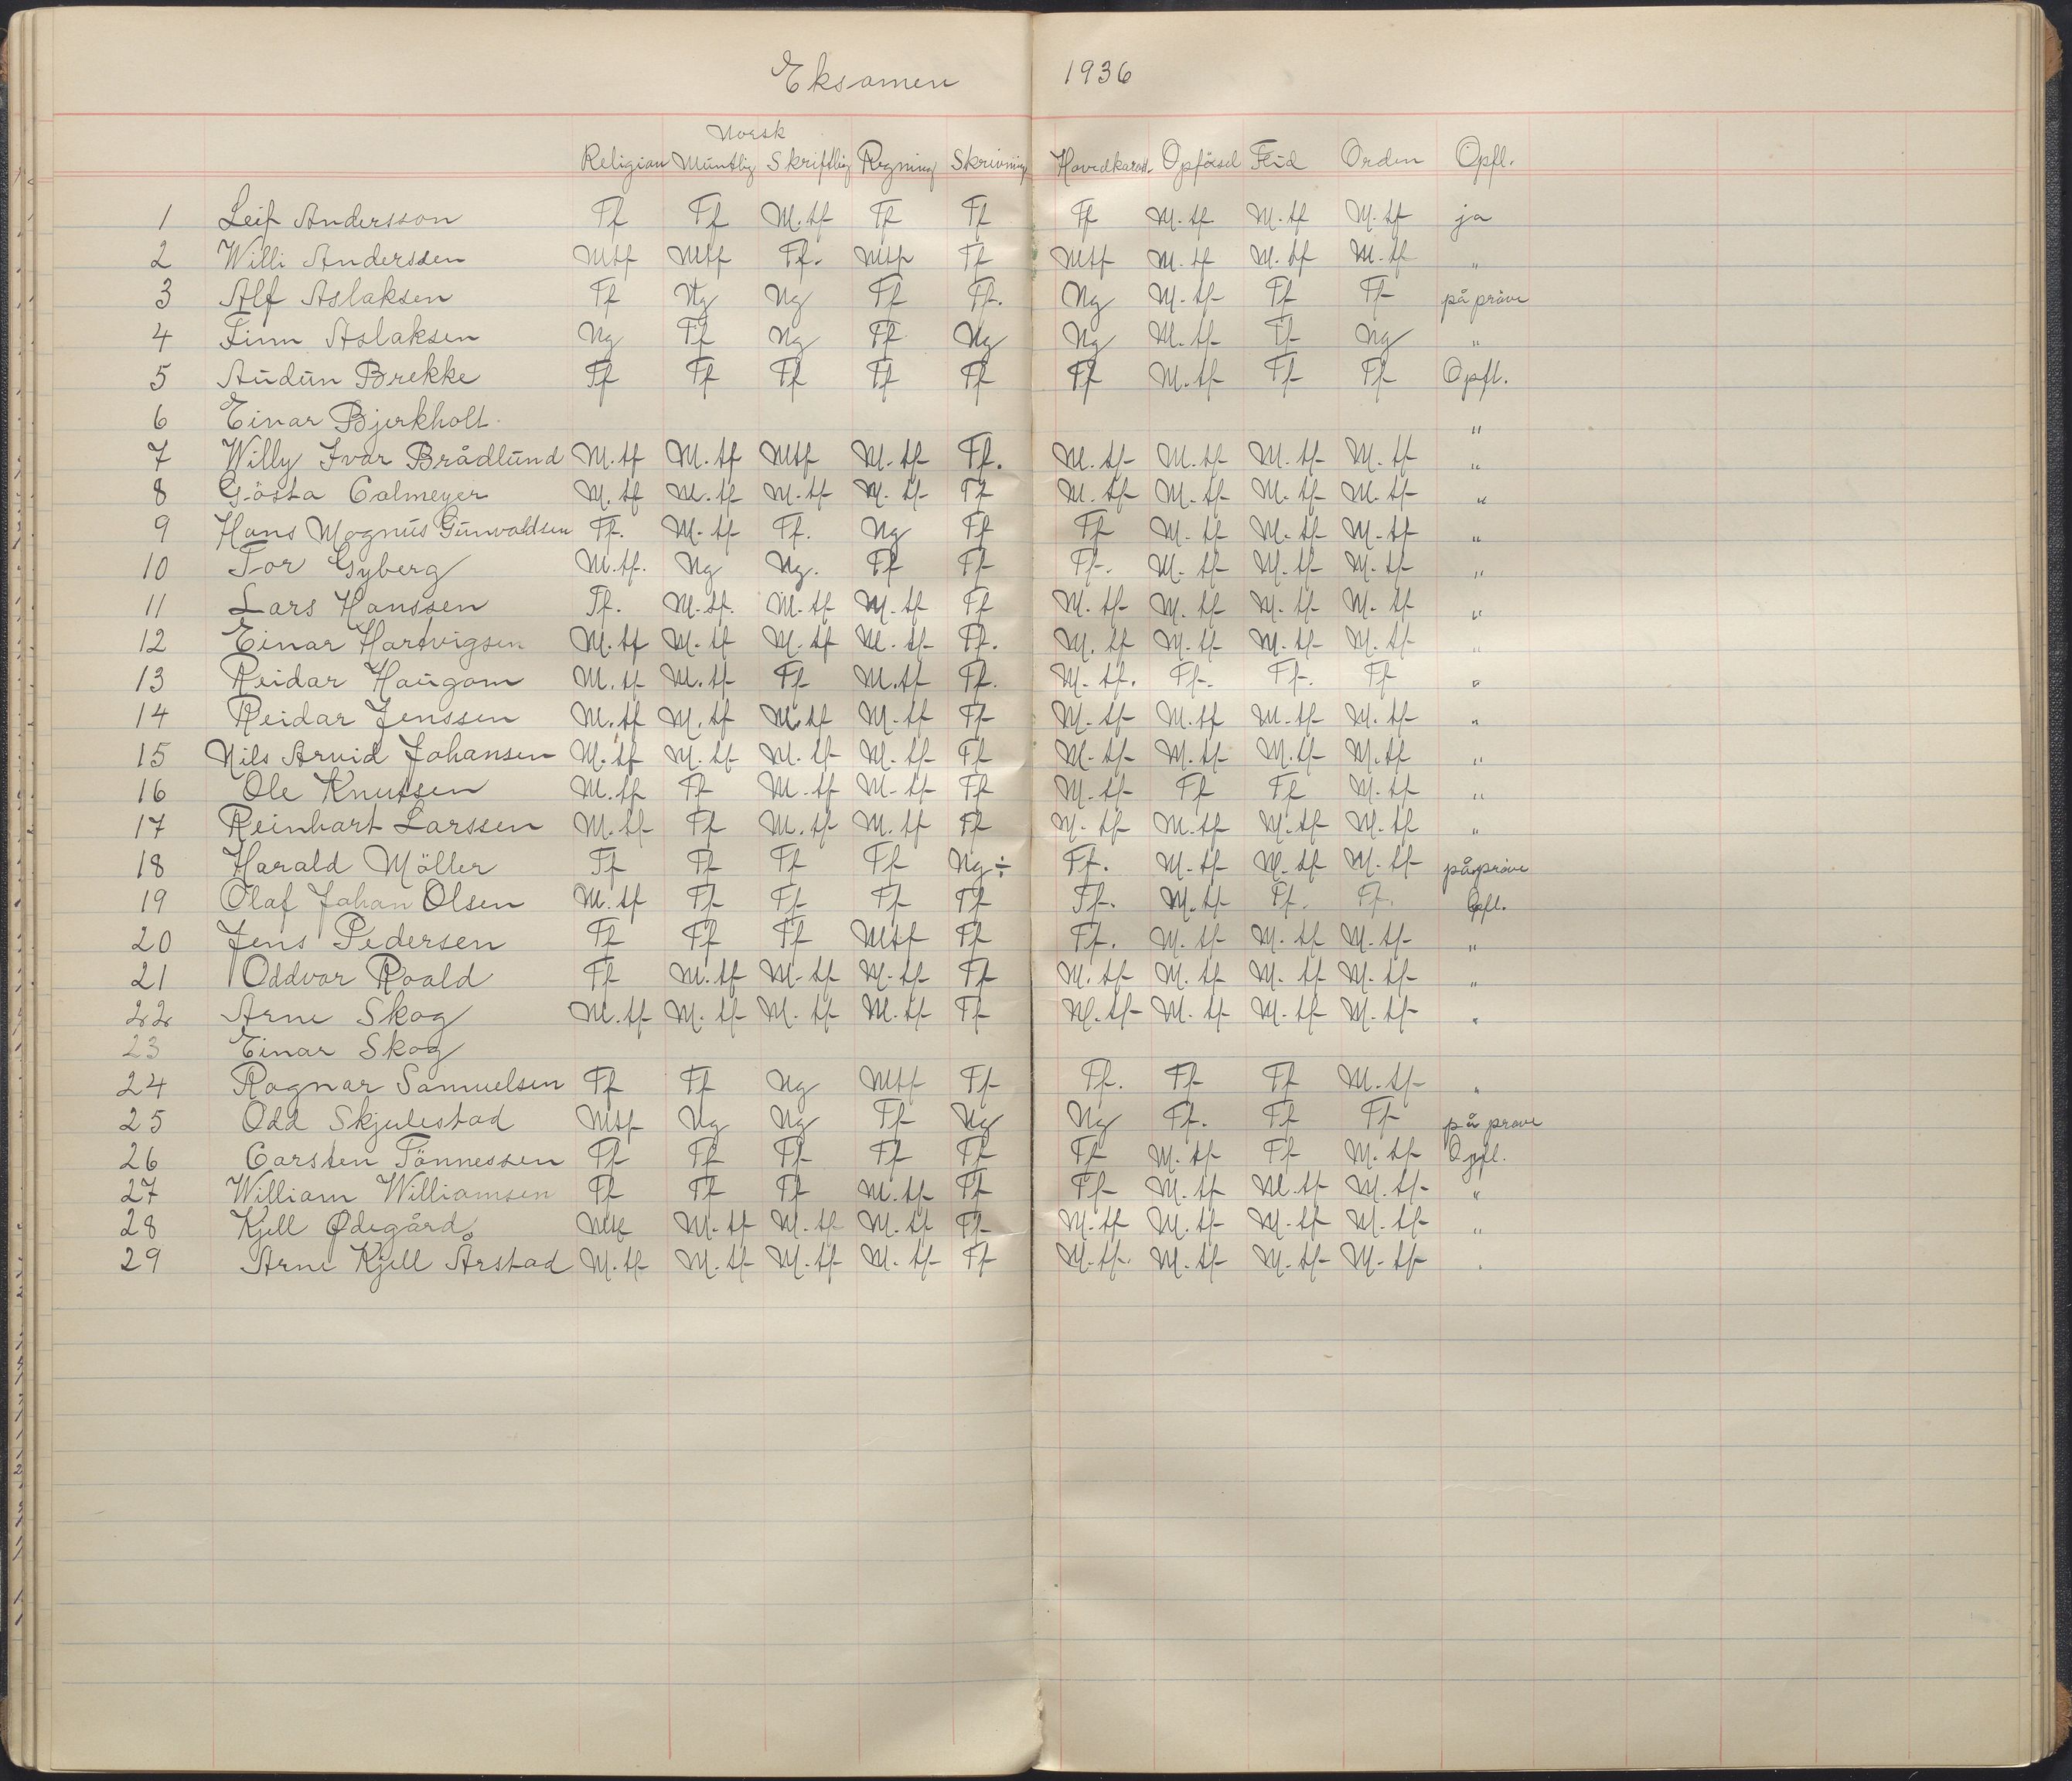 Eksamen 1936
Norsk
Religion Muntlig Skriftlig Regning Skrivning Hovedkarakt. Opförsel Flid Orden Opfl.
1 Leif Andersson Tf Tf M.tf Tf Tf Tf M.tf M.tf M.tf ja
2 Willi Anderssen Mtf Mtf Tf. Mtf Tf Mtf M.tf M.tf M.tf "
3 Alf Aslaksen Tf Ng Ng Tf Tf. Ng M.tf Tf Tf på pröve
4 Finn Aslaksen Ng Tf Ng Tf Ng Ng M.tf Tf Ng "
5 Audun Brekke Tf Tf Tf Tf Tf Tf M.tf Tf Tf Opfl.
6 Einar Bjerkholt "
7 Willy Ivar Brådlund M.tf M.tf Mtf M.tf Tf. M.tf M.tf M.tf M.tf "
8 Gösta Calmeyer M.tf M.tf M.tf M.tf Tf M.tf M.tf M.tf M.tf "
9 Hans Magnus Gunvaldsen Tf. M.tf Tf. Ng Tf Tf M.tf M.tf M.tf "
10 Tor Gyberg M.tf. Ng Ng. Tf Tf Tf. M.tf M.tf M.tf "
11 Lars Hanssen Tf. M.tf. M.tf M.tf Tf M.tf M.tf M.tf M.tf "
12 Einar Hartvigsen M.tf M.tf M.tf M.tf Tf. M.tf M.tf M.tf M.tf "
13 Reidar Haugom M.tf M.tf Tf M.tf Tf. M.tf. Tf. Tf. Tf "
14 Reidar Jenssen M.tf M.tf M.tf M.tf Tf M.tf M.tf M.tf M.tf "
15 Nils Arvid Johansen M.tf M.tf M.tf M.tf Tf M.tf M.tf M.tf M.tf "
16 Ole Knutsen M.tf Tf M.tf M.tf Tf M.tf Tf Tf M.tf "
17 Reinhart Larssen M.tf Tf M.tf M.tf Tf M.tf M.tf M.tf M.tf "
18 Harald Möller Tf Tf Tf Tf Ng÷ Tf. M.tf M.tf M.tf på pröve
19 Olaf Johan Olsen M.tf Tf Tf Tf Tf Tf. M.tf Tf. Tf. Opfl.
20 Jens Pedersen Tf Tf Tf Mtf Tf Tf. M.tf M.tf M.tf "
21 Oddvar Roald Tf M.tf M.tf M.tf Tf M.tf M.tf M.tf M.tf "
22 Arne Skog M.tf M.tf M.tf M.tf Tf M.tf M.tf M.tf M.tf "
23 Einar Skog
24 Ragnar Samuelsen Tf Tf Ng Mtf Tf Tf. Tf Tf M.tf "
25 Odd Skjulestad Mtf Ng Ng Tf Ng Ng Tf. Tf Tf på pröve
26 Carsten Tönnessen Tf Tf Tf Tf Tf Tf M.tf Tf M.tf Opfl.
27 William Williamsen Tf Tf Tf M.tf Tf Tf M.tf M.tf M.tf "
28 Kjell Ødegård Mtf M.tf M.tf M.tf Tf M.tf M.tf M.tf M.tf "
29 Arne Kjell Årstad M.tf M.tf M.tf M.tf Tf M.tf. M.tf M.tf M.tf "